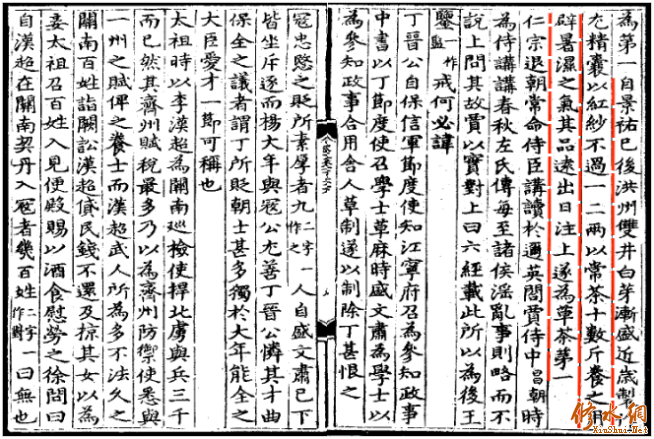 為第一自景祐已後洪州雙井白芽漸盛近歲製
尤精囊以紅紗不過一二兩以常茶十數斤養之用
辟暑濕之氣其品遠出日注上遂為草茶第一
仁宗退朝常命侍臣講讀於邇英閣賈侍中昌朝時
為侍講講春秋左氏傳每至諸侯淫亂事則略而不
說上問其故賈以實對上曰六經載此所以為後王
鑒一作監戒何必諱
丁晉公自保信軍節度使知江寧府召為參知政事
中書以丁節度使召學士草麻時盛文肅為學士以
為參知政事合用舍人草制遂以制除丁甚恨之
冦忠愍之貶所素厚者九二字一作之人自盛文肅已下
皆坐斥逐而楊大年與冦公尤善丁晉公憐其才曲
保全之議者謂丁所貶朝士甚多獨於大年能全之
大臣愛才一節可稱也
太祖時以李漢超為關南巡檢使捍北虜與兵三千
而已然其齊州賦稅最多乃以為齊州防禦使悉與
一州之賦俾之養士而漢超武人所為多不法久之
關南百姓詣闕訟漢超貸民錢不還及掠其女以為
妾太祖召百姓入見便殿賜以酒食慰勞之徐問曰
自漢超在關南契丹入冦者幾百姓二字一作對曰無也
修水網
XiuShui.Net